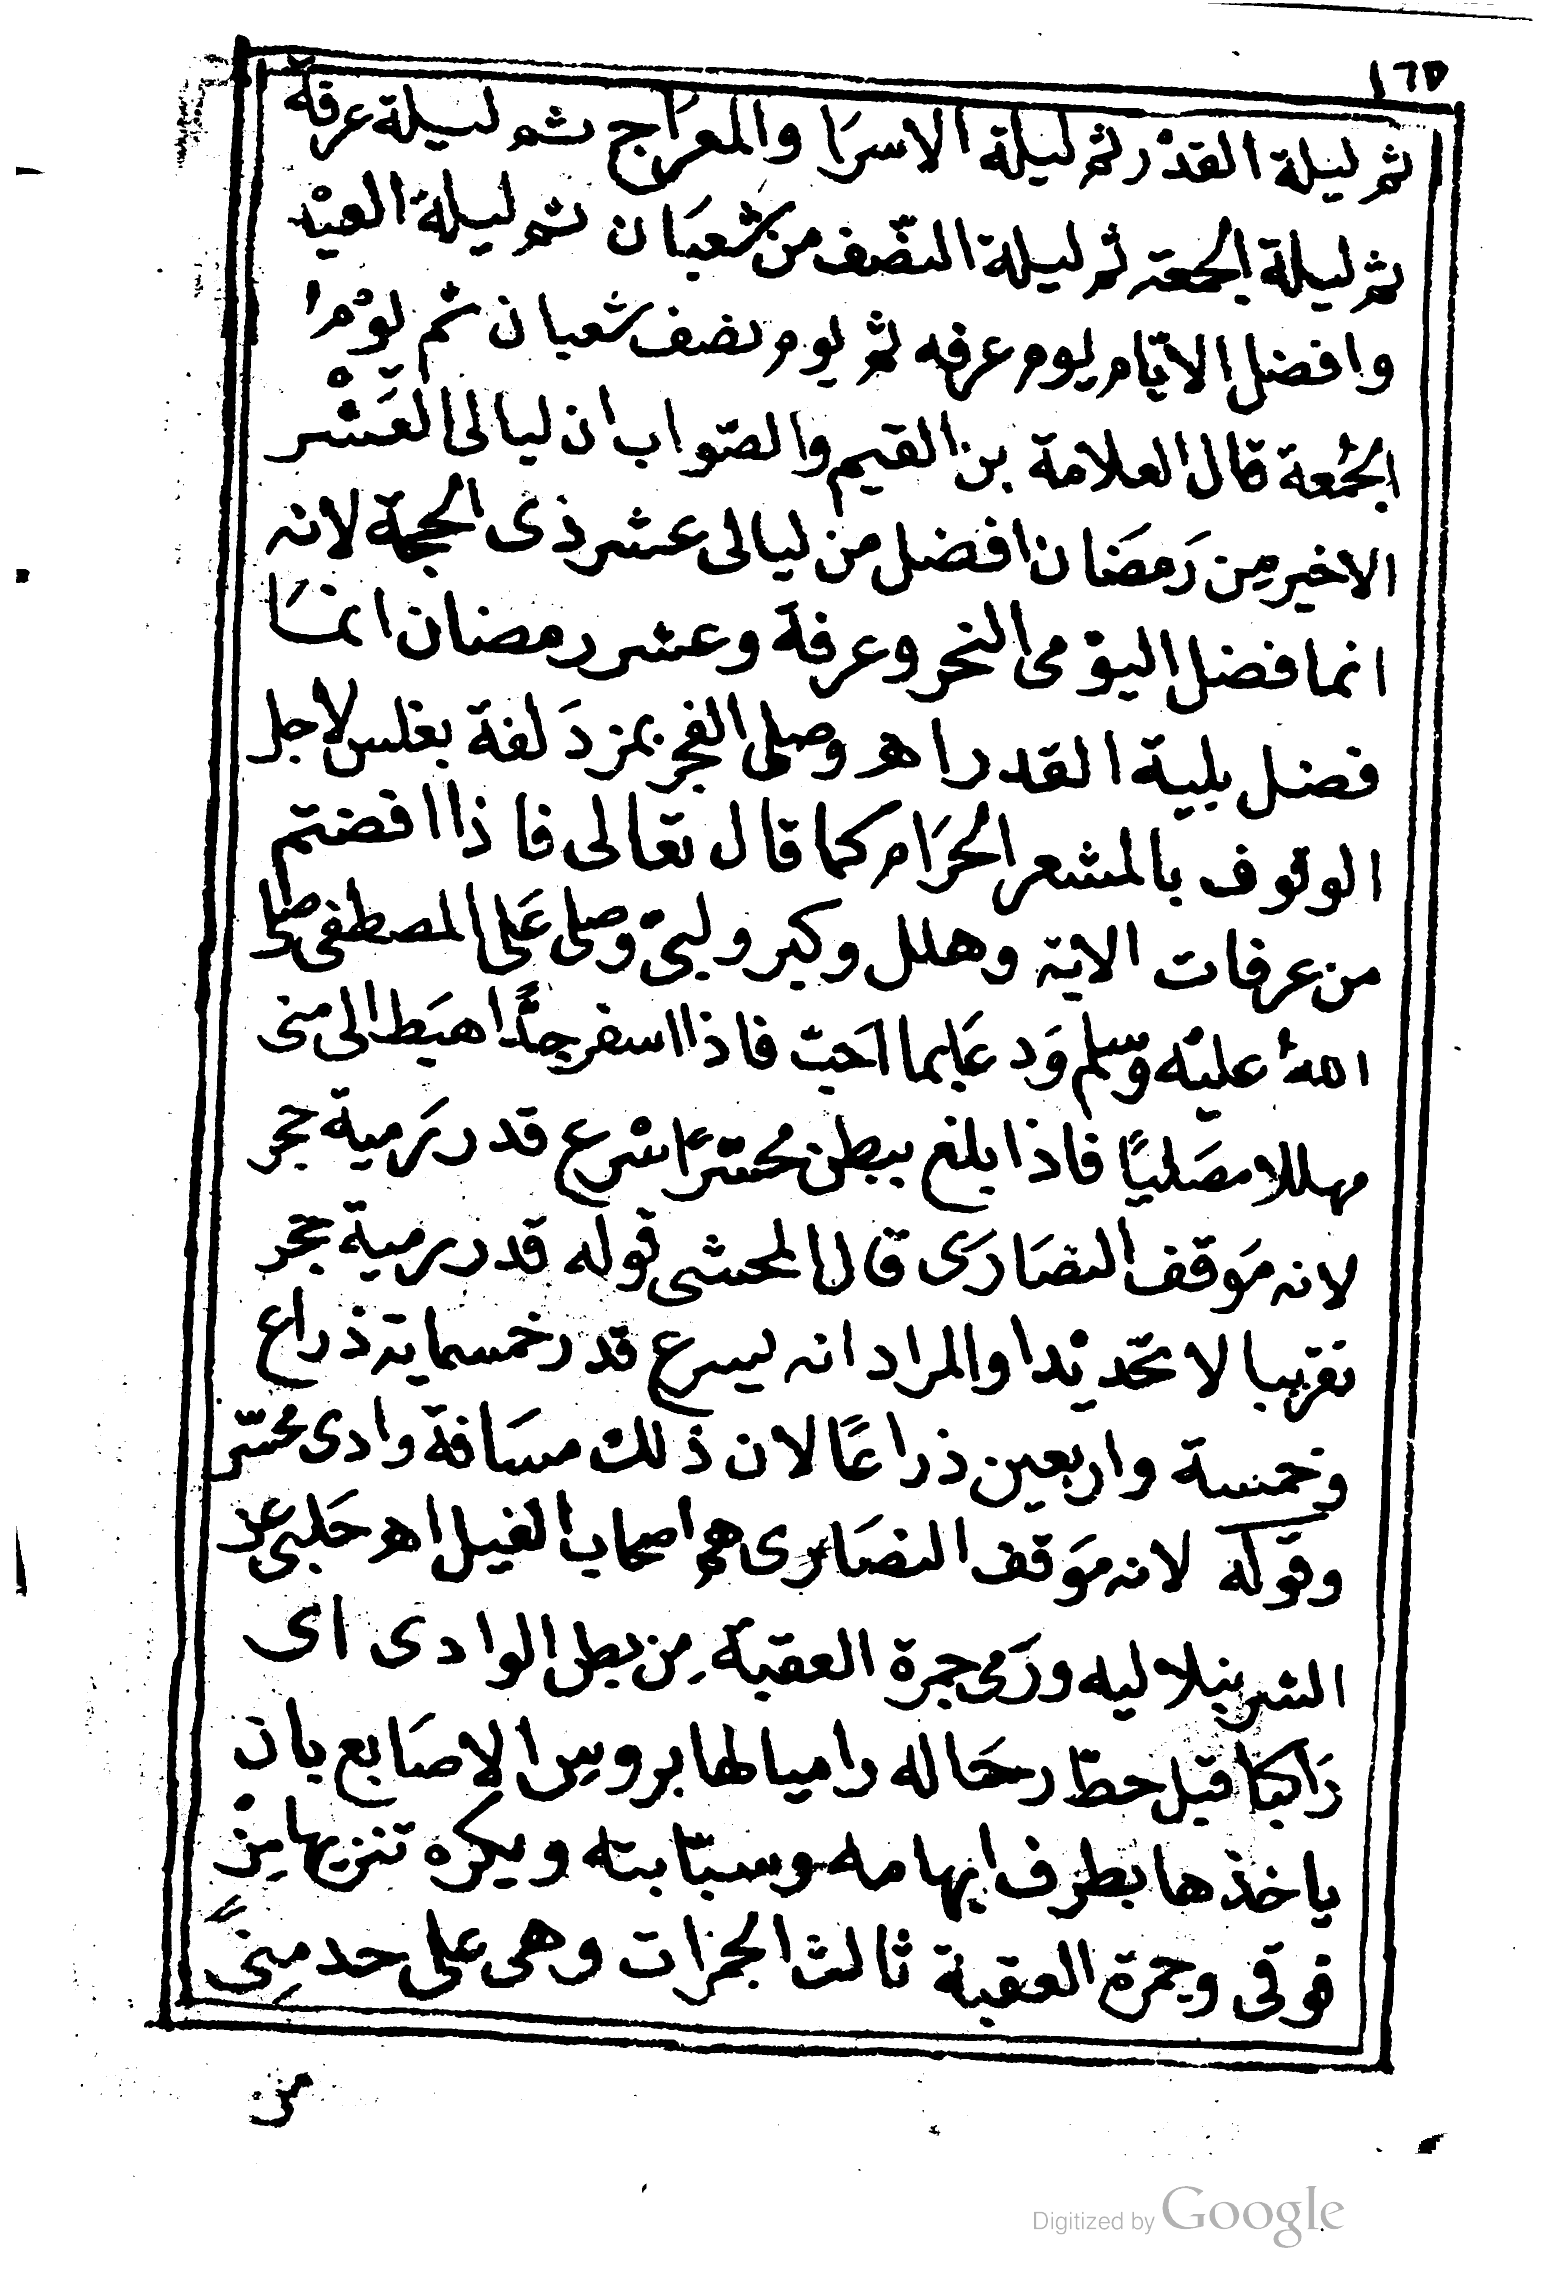 ١٦٥
ثم ليلة القدْر ثم ليلة الاسرَا والمعرَاج ثم ليلة عرفة
ثم ليلة الجمعة ثم ليلة النصْف من شعبَان ثم ليلة العيْد
وافضل الايّام يوم عرفه ثم يوم نصف شعبان ثم يوْم
الجُمعة قال العلامة بن القيم والصّواب ان ليالى العَشْر
الاخير مِن رَمضَان افضل من ليالى عشر ذى الحجة لانه
انما فضل اليوْمى النحر وعرفة وعشر رمضان انمَا
فضل بلية القدر اهـ وصلى الفجر بمزدَلفة بغلس لاجل
الوقوف بالمشعر الحرَام كما قال تعالى فاذا افضتم
من عرفات الاية وهلل وكبر ولبىّ وصلى عَلى المصطفى صلى
اللهُ عليْه وسلم وَدعَا بما احَبّ فاذا اسفر جدًّا اهبَط الى منى
مهللا مصَليًا فاذا بلغ ببطن مُحسّرًا اسْرع قدر رَمية حجر
لانه مَوقف النصَارَى قال المحشى قوله قدر رمية حجر
تقريبا لا تحديْدا والمراد انه ليسرع قدر خمسماية ذراع
وخمسة واربعين ذراعًا لان ذلك مسَافة وادى محسّر
وقوله لانه مَوقف النصَارى هم اصحاب الفيل اهـ حَلبى عن
الشرنبلاليه ورَمى جمرة العقبَة مِن بطن الوادى اى
رَاكبًا قبل حطّ رحَاله راميا لها بروس الاصَابع بان
ياخذها بطرف ابهامه وسبّابته ويكره تنزيها مِنْ
فوقى وجمرة العقبة ثالث الجمرَات وهى على حد مِنىً
من
Digitized by Google